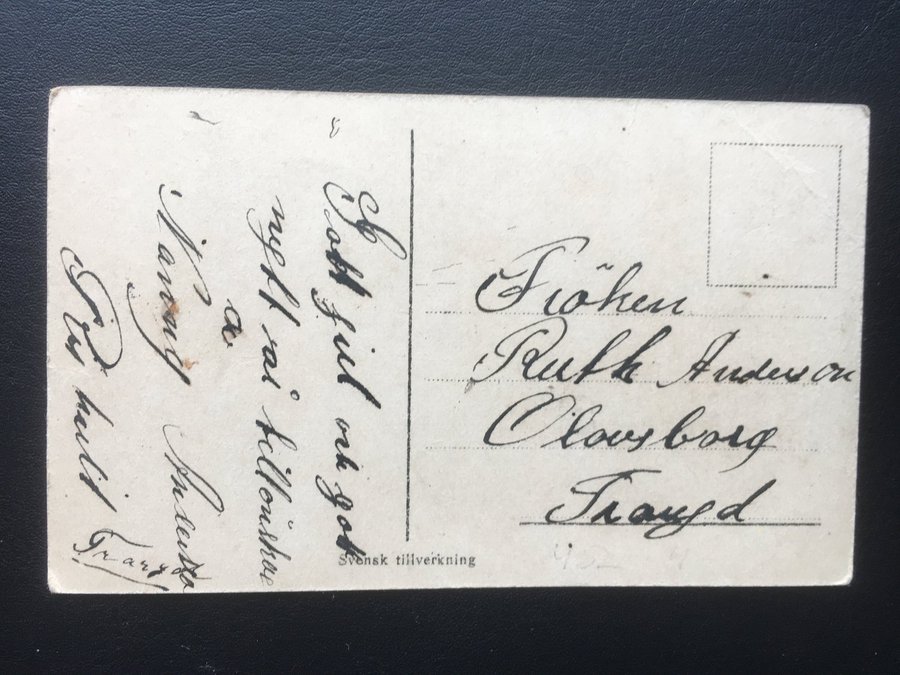 Gott jul och gott
nytt år tillönskas
a
Nanny Andersson
Fröken
Ruth Anderson
Olovsborg
Trangd
Svensk tillverkning